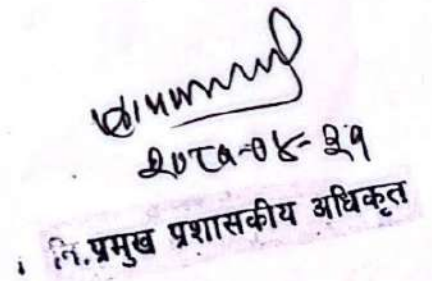 २०८१-०४-२१
नि.प्रमुख प्रशासकीय अधिकृत